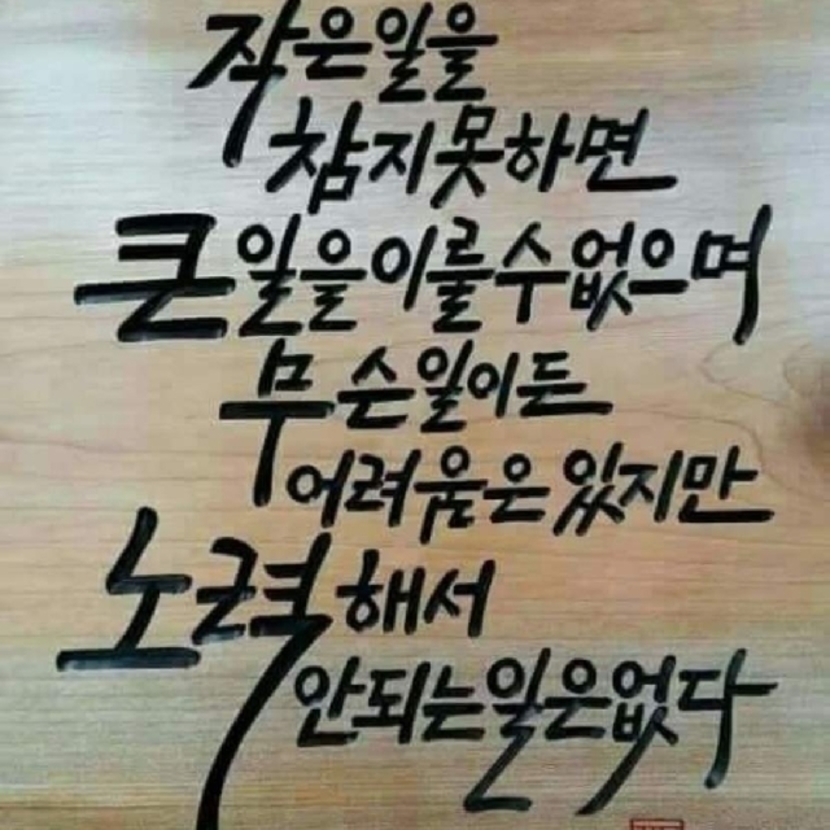 작은일을
참지못하면
큰일을이룰수없으며
무슨일이든
어려움은있지만
노력해서
안되는일은없다